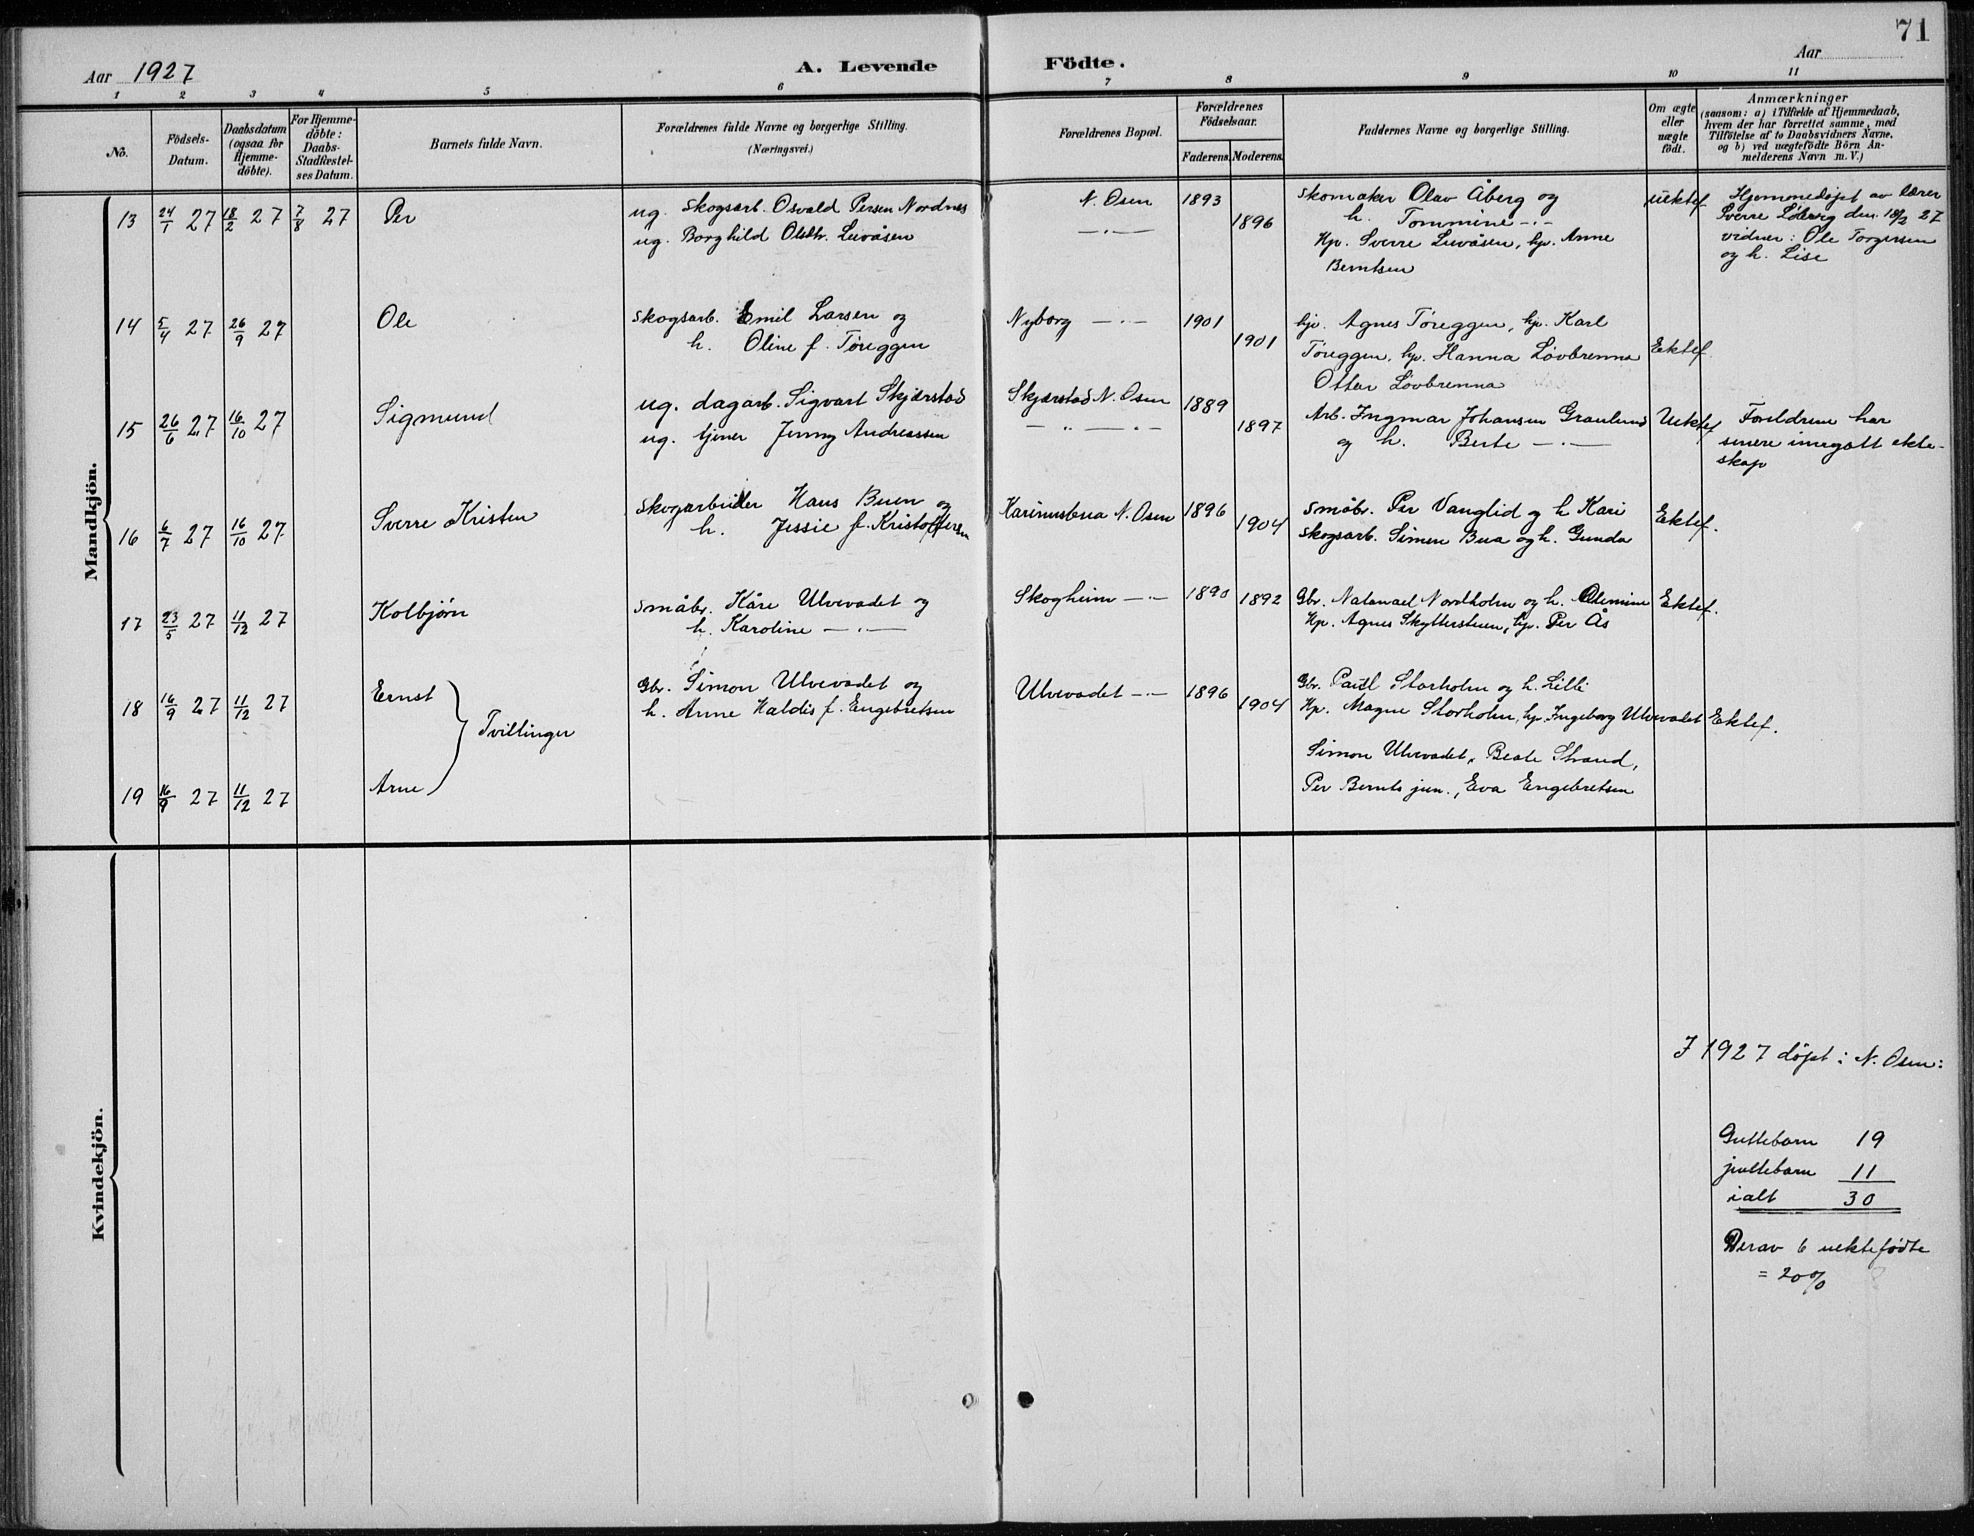 71
Aar 1927
A. Levende Födte.
Aar
1 2 3 4 5 6 7 8 9 10 11
No.
Födsels-Datum.
Daabsdatum (ogsaa for Hjemme-döbte).
For Hjemme-döbte: Daabs-Stadfæstel-ses Datum.
Barnets fulde Navn.
Forældrenes fulde Navne og borgerlige Stilling.
(Næringsvei.)
Forældrenes Bopæl.
Forældrenes Födselsaar.
Faderens. Moderens.
Faddernes Navne og borgerlige Stilling.
Om ægte eller uægte födt.
Anmærkninger
(saasom: a) i Tilfælde af Hjemmedaab, hvem der har forrettet samme, med Tilföielse af to Daabsvidners Navne, og b) ved uægtefödte Börn An-melderens Navn m. V.)
Mandkjön.
13 24/1 27 18/2 27 7/8 27 Per
ug. Skogsarb. Osvald Persen Nordnes
ug. Borghild Olsdtr. Luvåsen
N. Osen 1893
— " — 1896
Skomaker Olav Åberg og
h. Tommine — " —
Up. Sverre Luvåsen, hp. Anne
Berntsen
uektef.
Hjemmedøpt av lærer
Sverre Løberg den 18/2 27
vidner: Ole Torgersen
og h. Lise
14 5/4 27 26/9 27 Ole
Skogsarb. Emil Larsen og
h. Oline f. Tøreggen
Nyborg — " — 1901
1901
hp. Agnes Tøreggen, hp. Karl
Tøreggen, hp. Hanna Løvbrenna
Ottar Løvbrenna
Ektef.
15 26/6 27 16/10 27 Sigmund
ug. dagarb. Sigvart Skjærstad
ug. tjener Jenny Andreassen
Skjærstad N. Osen 1889
— " — — " — 1897
Arb. Ingmar Johansen Granlund
og h. Berte — " —
Uektef
Foreldrene har
senere inngått ekte-
skap
16 6/7 27 16/10 27 Sverre Kristen
Skogarbeider Hans Buen og
h. Jessie f. Kristoffersen
Karinusbua N. Osen 1896
1904
Småbr. Per Vanglid og h Kari
Skogsarb. Simen Bua og h. Gunda
Ektef.
17 23/5 27 11/12 27 Kolbjørn
Småbr. Kåre Ulvevadet og
h. Karoline — " —
Skogheim — " — 1890 1892
Gbr. Natanael Nordholm og h. Olemine
Up. Agnes Skytterstuen, hp. Per Ås
Ektef.
18 16/9 27 11/12 27 Ernst
Tvillinger
Gbr. Simon Ulvevadet og
h. Anne Haldis f. Engebretsen
Ulvevadet — " — 1896
1904
Gbr. Paul Storholm og h. Lilli
Up. Magne Storholm, hp. Ingeborg Ulvevadet
Ektef.
19 16/9 27 11/12 27 Arne
Simon Ulvevadet, Beate Strand,
Per Bernts jun., Eva Engebretsen
Kvindekjön.
I 1927 døpt i N. Osen:
Guttebarn 19
pikebarn 11
ialt 30
Derav 6 uektefødte
= 20%